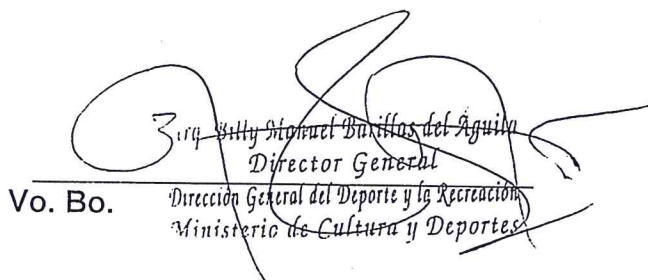 Arq. Billy Manuel Barillas del Águila
Director General
Vo. Bo. Dirección General del Deporte y la Recreación
Ministerio de Cultura y Deportes